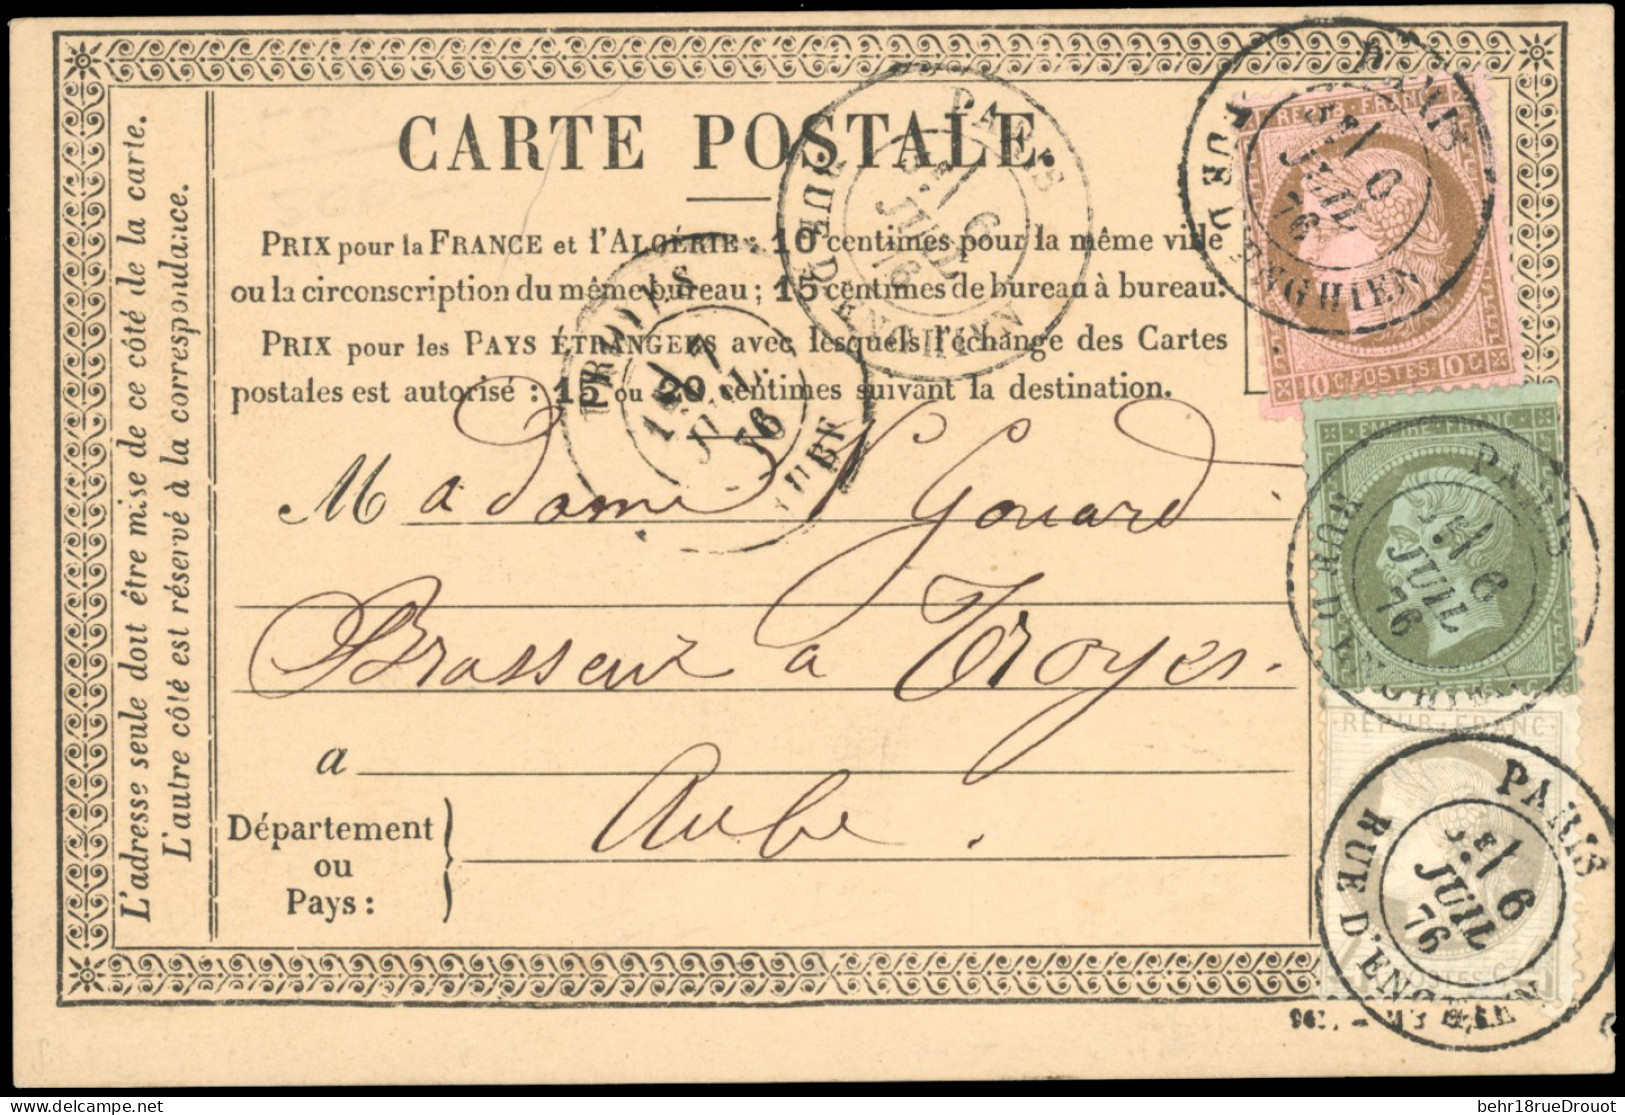 CARTE POSTALE.
PRIX pour la FRANCE et l'ALGÉRIE : 10 centimes pour la même ville
ou la circonscription du même bureau ; 15 centimes de bureau à bureau.
PRIX pour les PAYS ÉTRANGERS avec lesquels l'échange des Cartes
postales est autorisé : 15 ou 20 centimes suivant la destination.
L'adresse seule doit être mise de ce côté de la carte.
L'autre côté est réservé à la correspondance.
Madame Gouard
Brasseur a Troyes.
a
Aube.
Département
ou
Pays :
PARIS
RUE D'ENGHIEN
5E/ 6
JUIL
76
TROYES
AUBE
7
JUIL
76
REPUB FRANC
10 C POSTES 10 C
PARIS
RUE D'ENGHIEN
5E/ 6
JUIL
76
EMPIRE FRANC
PARIS
RUE D'ENGHIEN
5E/ 6
JUIL
76
REPUB FRANC
PARIS
RUE D'ENGHIEN
5E/ 6
JUIL
76
behr18rueDrouot